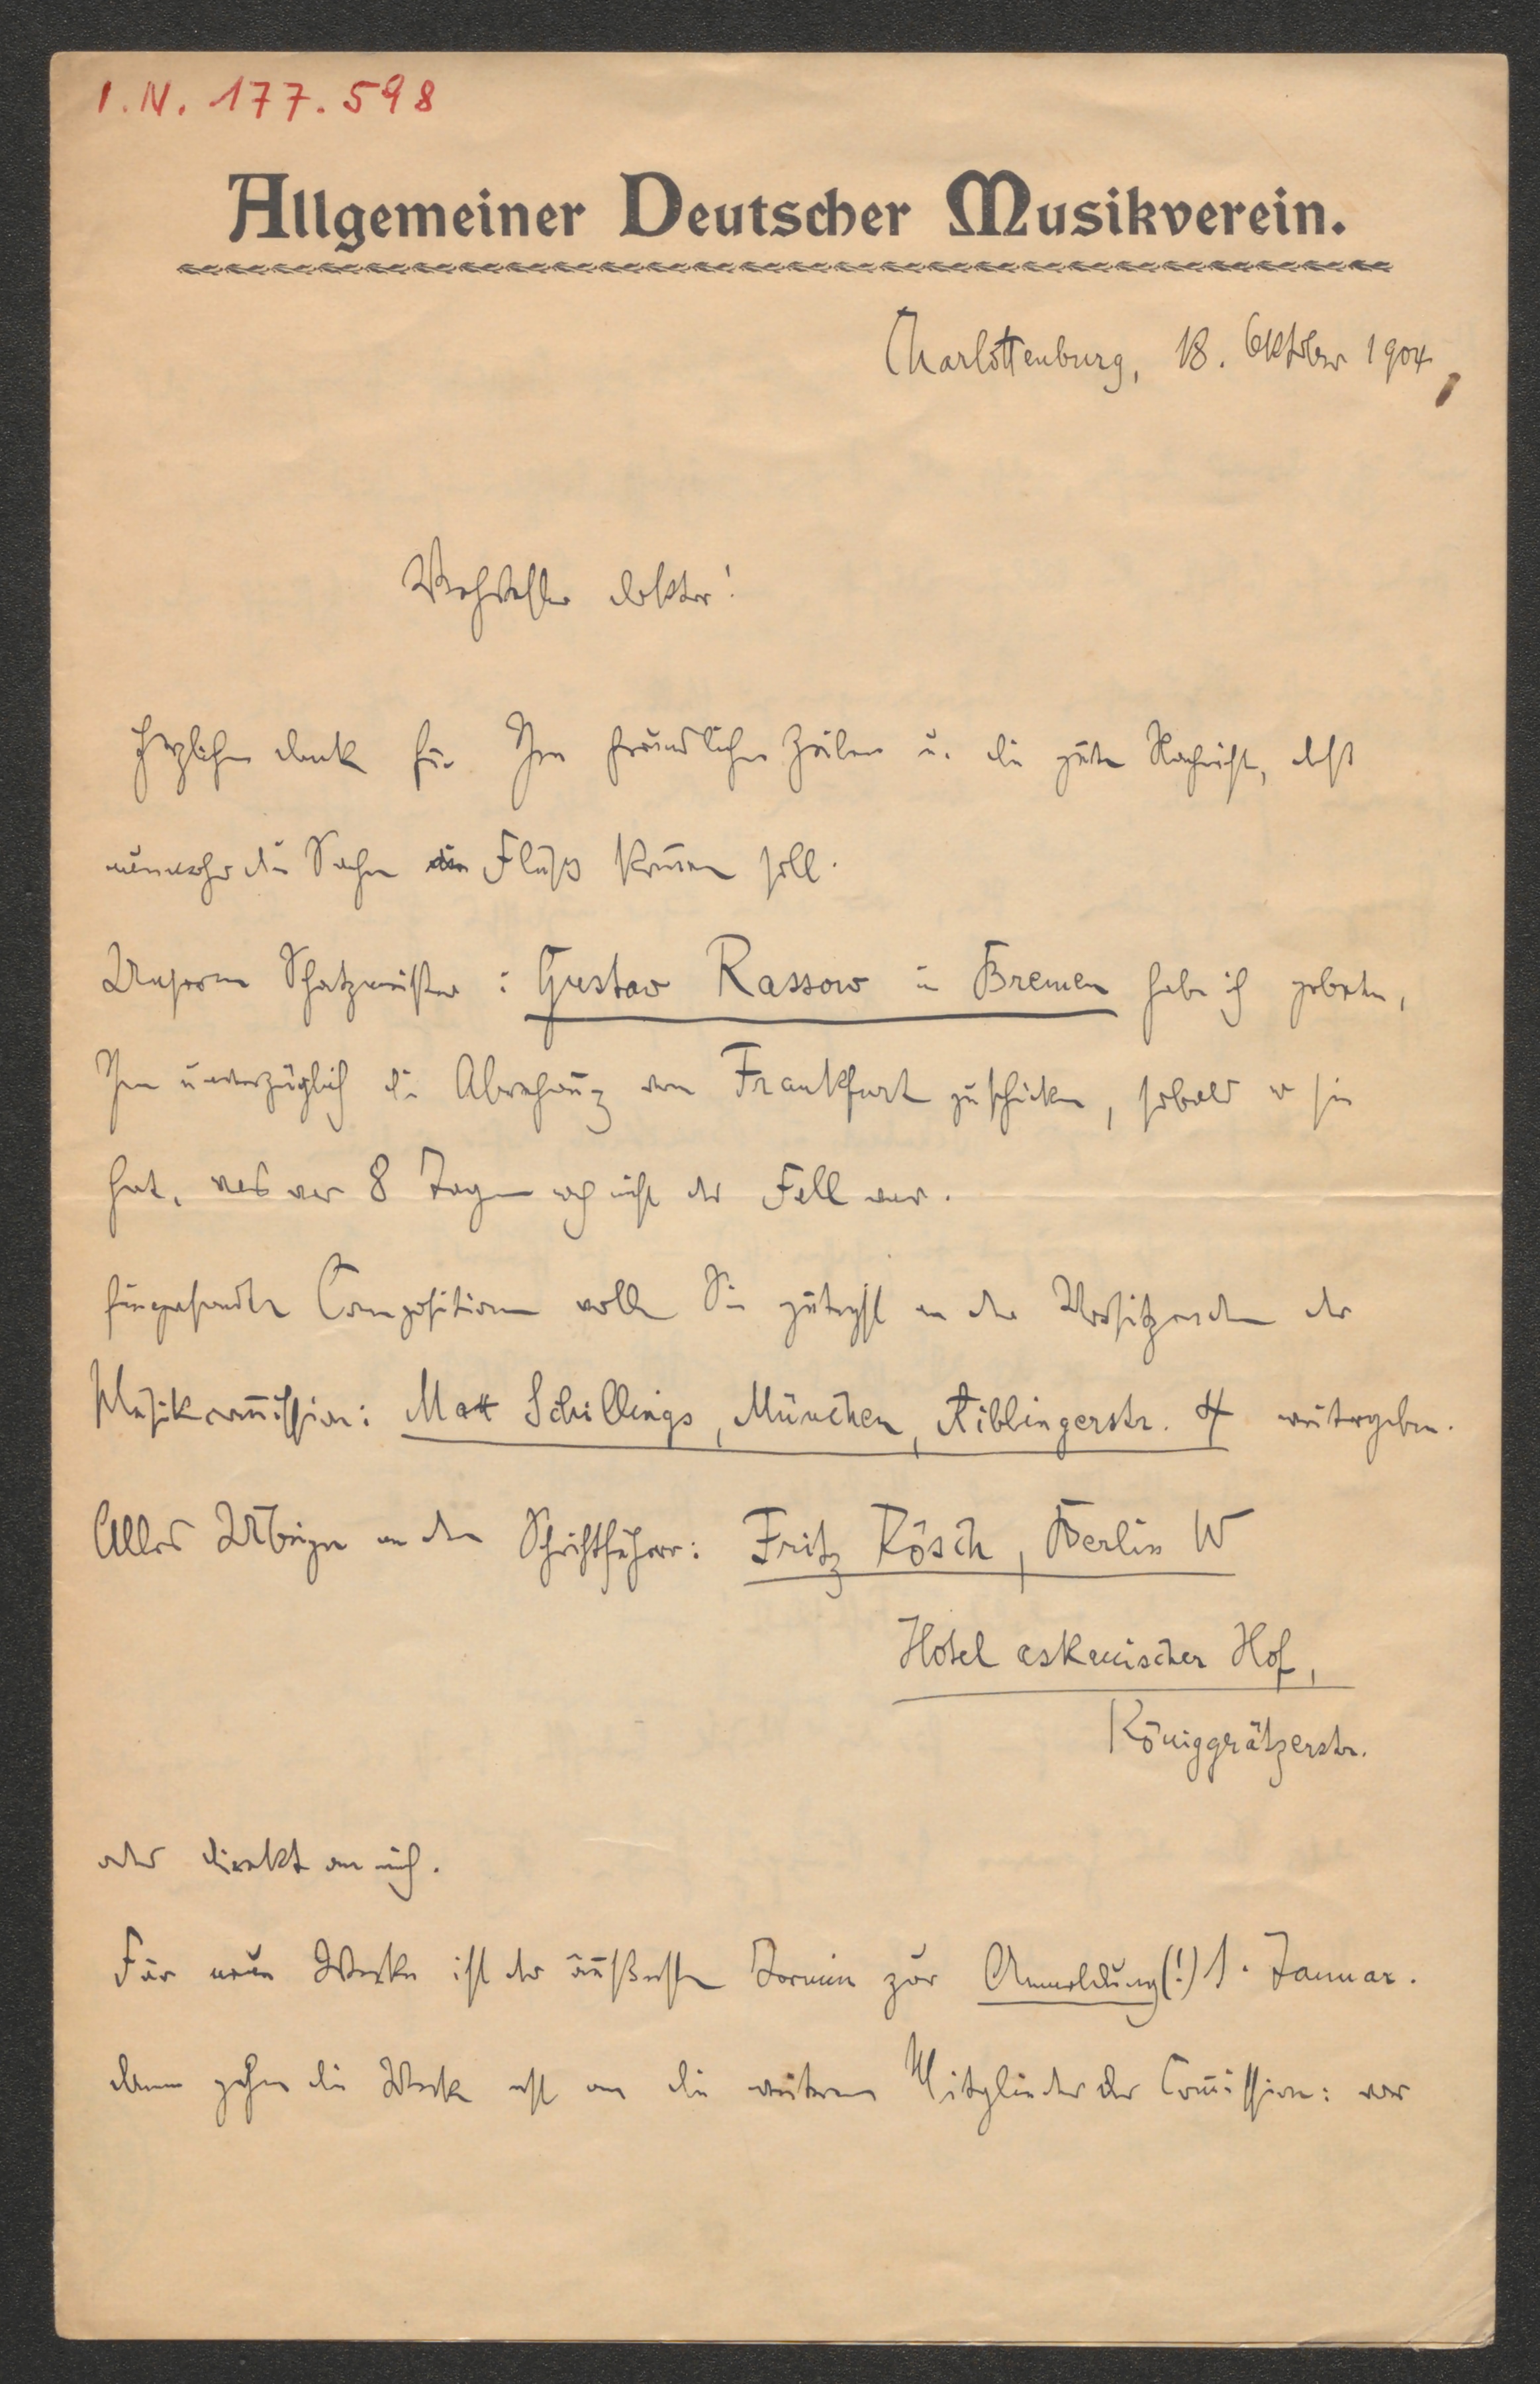 I.N. 177.598
Allgemeiner Deutscher Musikverein.
Charlottenburg, 18. Oktober 1904,
Verehrtester Doktor!
Herzlichen Dank für Ihre freundlichen Zeilen u. die gute Nachricht, daß
nunmehr die Sache in Fluß kommen soll.
Unsern Schatzmeister: Gustav Rassow in Bremen habe ich gebeten,
Ihnen unverzüglich die Abrechnung von Frankfurt zu schicken, sobald er sie
hat, was vor 8 Tagen noch nicht der Fall war.
Eingesandte Compositionen wollen Sie gütigst an den Vorsitzenden der
Musikcom̅ission: Max Schillings, München, Aiblingerstr. 4 weitergeben.
Alles Übrige an den Schriftführer: Fritz Rösch, Berlin W
Hotel askanischer Hof,
Königgrätzerstr.
oder direkt an mich.
Für neue Werke ist der äußerste Termin zur Anmeldung(!) 1. Januar.
dann gehen die Werke erst an die weiteren Mitglieder der Com̅ission: vor